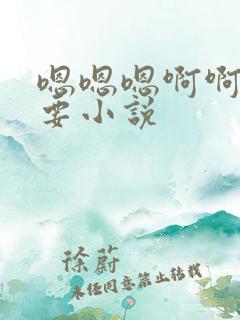 嗯嗯嗯啊啊
要小说
徐蔚
未经同意禁止转载